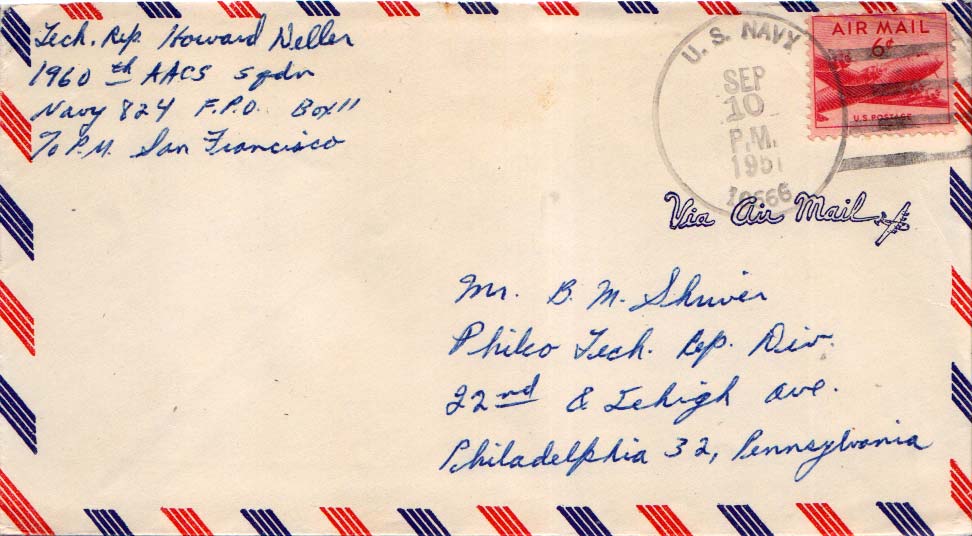 Tech. Rep. Howard Neller
1960 th AACS sqdn
Navy 824 F.P.O. Box 11
℅ P.M. San Francisco
U. S. NAVY
SEP
10
P.M.
1951
AIR MAIL
6¢
U.S. POSTAGE
Via Air Mail
Mr. B. M. Shriver
Philco Tech. Rep. Div.
22nd & Lehigh Ave.
Philadelphia 32, Pennsylvania